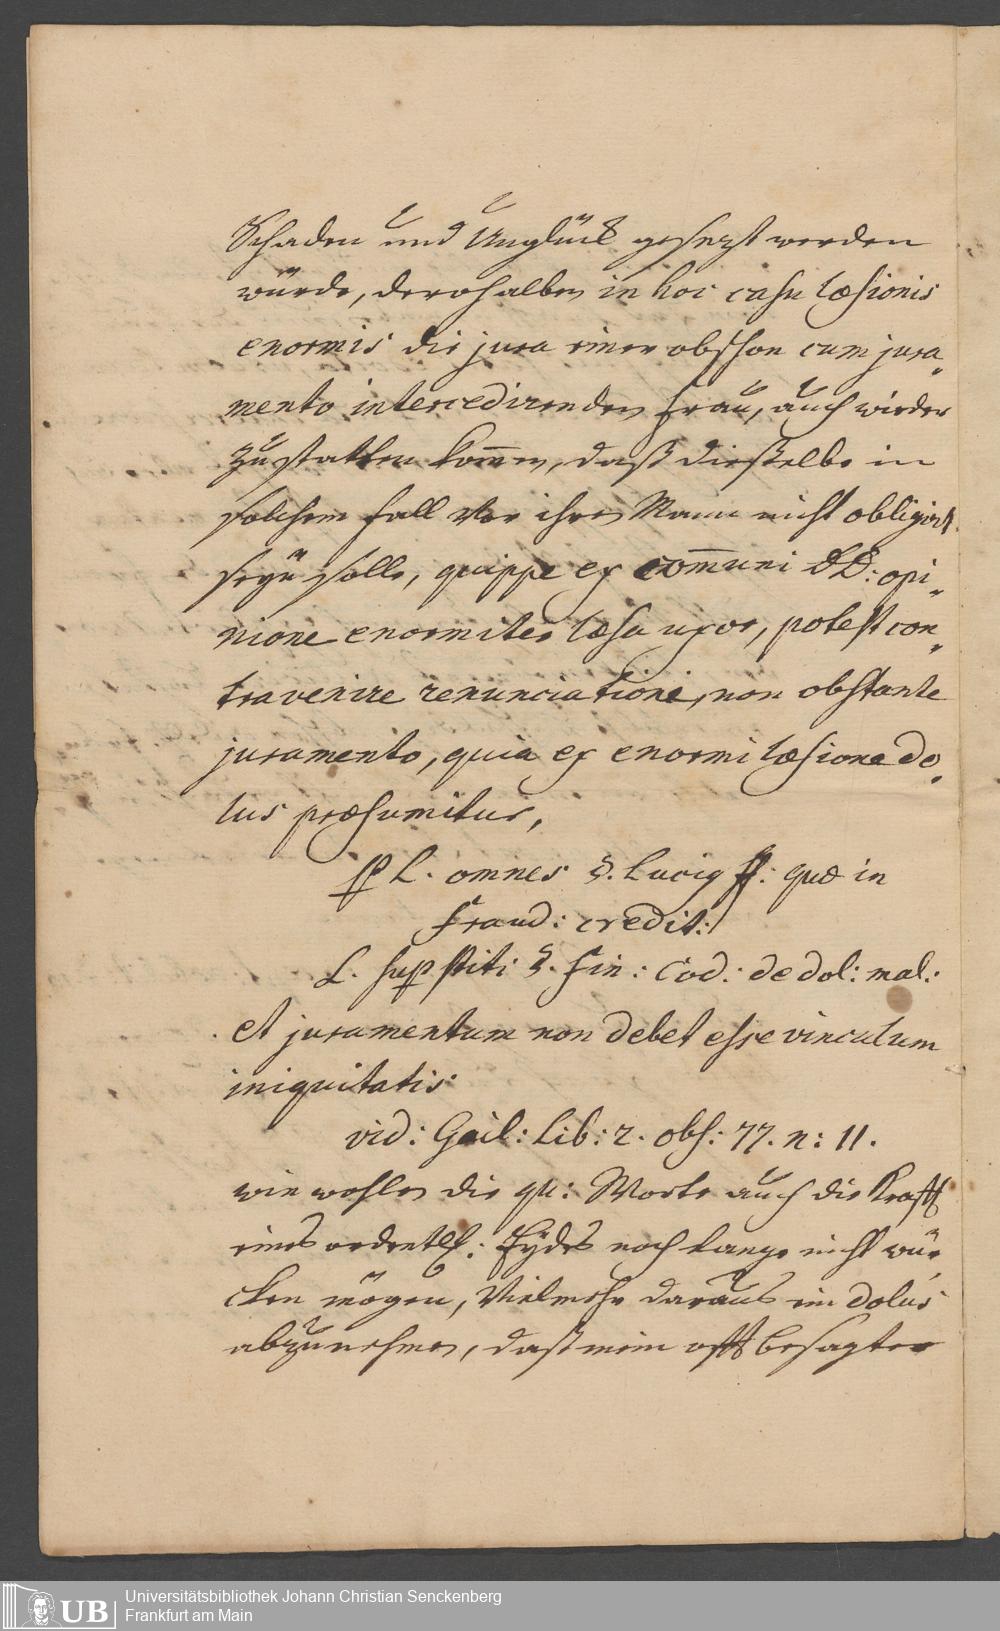 Schaden und Unglück gesezt werden
würde, derohalben in hoc casu læsionis
enormis die jura einer obschon cum jura-
mento intercedirenden Frau, auch wieder
zu statten kom̅en, daß dießelbe in
solchem Fall vor ihren Mann nicht obligirt
seyn solle, quippe ex com̅uni DD: opi-
nione enormiter læsa uxor, potest con-
travenire renunciationi, non obstante
juramento, quia ex enormi læsione do-
lus præsumitur,
p L. omnes §. Lucig ff: quæ in
fraud: credit:
L. sup stiti §. fin: Cod: de dol: mal:
et juramentum non debet esse vinculum
iniquitatis
vid: Gail: Lib: 2. obs: 77. n: 11.
wie wohlen die qu: Worte auch die Krafft
eines ordentl: Eydes noch lange nicht wür-
cken mögen, Vielmehr daraus ein dolus
abzunehmen, daß mein offt besagter
Universitätsbibliothek Johann Christian Senckenberg
Frankfurt am Main
UB